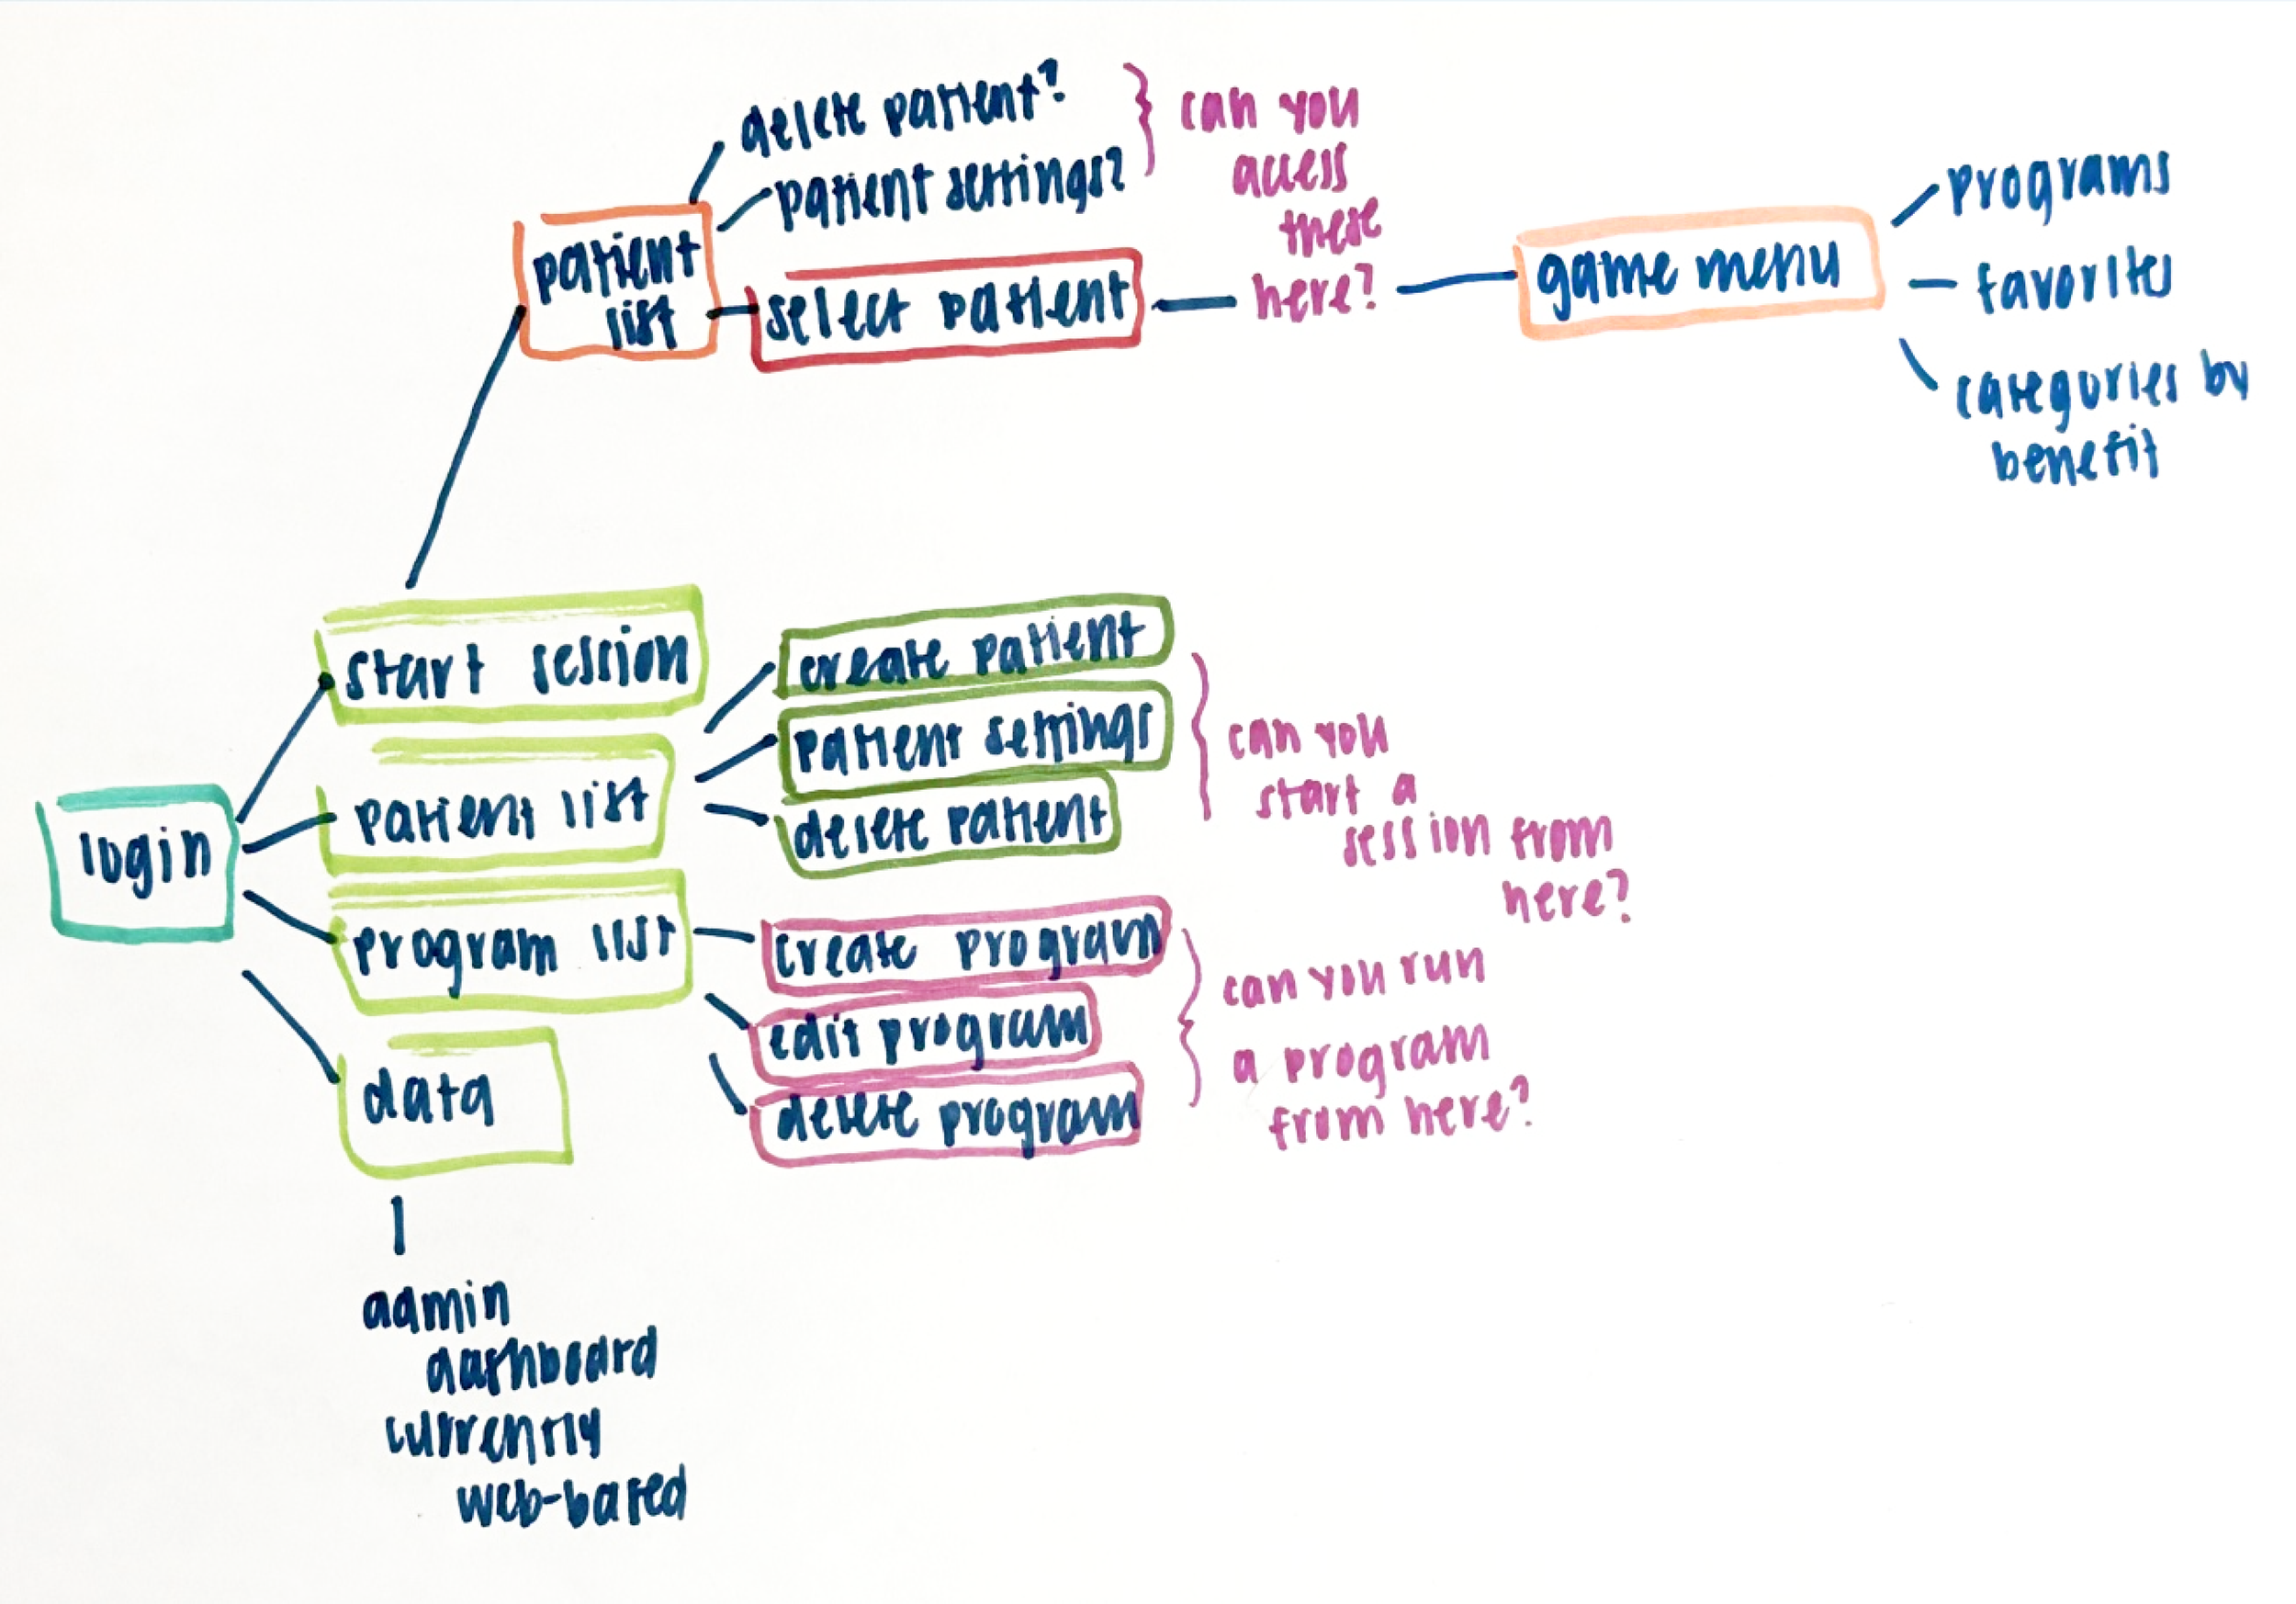 delete patient?
patient settings?
can you
access
these
here?
patient
list
select patient
game menu
programs
favorites
categories by
benefit
start session
patient list
program list
data
login
create patient
patient settings
delete patient
can you
start a
session from
here?
create program
edit program
delete program
can you run
a program
from here?
admin
dashboard
currently
web-based